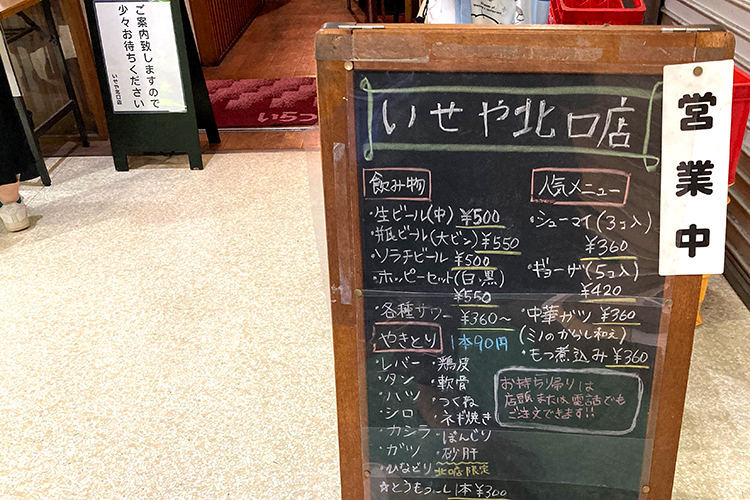 ご案内致しますので
少々お待ちください
いせや北口店
いせや北口店
営業中
飲み物
・生ビール(中) ¥500
・瓶ビール(大ビン) ¥550
・ソラチビール ¥500
・ホッピーセット(白、黒)
¥550
・各種サワー ¥360～
やきとり 1本90円
・レバー ・鶏皮
・タン ・軟骨
・ハツ ・つくね
・シロ ・ネギ焼き
・カシラ ・ぼんじり
・ガツ ・砂肝
・ひなどり 北口店限定
1本¥300
人気メニュー
・シューマイ(3コ入)
¥360
・ギョーザ(5コ入)
¥420
・中華ガツ ¥360
(ミノのからし和え)
・もつ煮込み ¥360
お持ち帰りは
店頭または電話でも
ご注文できます!!